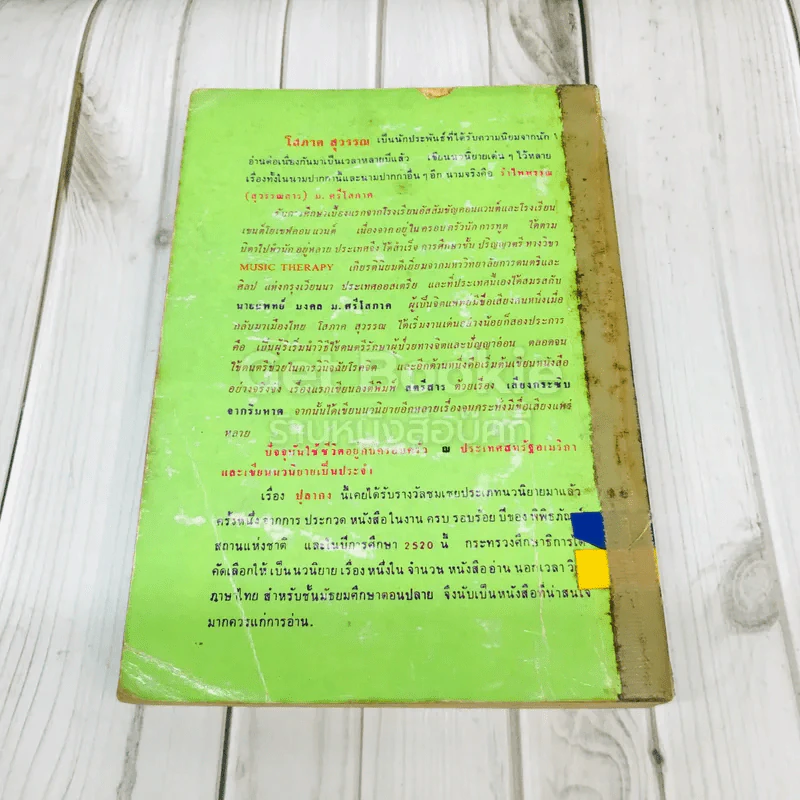 โสภาค สุวรรณ เป็นนักประพันธ์ที่ได้รับความนิยมจากนัก
อ่านต่อเนื่องกันมาเป็นเวลาหลายปีแล้ว เขียนนวนิยายเด่น ๆ ไว้หลาย
เรื่องทั้งในนามปากกานี้และนามปากกาอื่น ๆ อีก นามจริงคือ รำไพพรรณ
(สุวรรณสาร) ม. ศรีโสภาค
จบการศึกษาเบื้องแรกจากโรงเรียนอัสสัมชัญคอนแวนต์และโรงเรียน
เซนต์โยเซฟคอนแวนต์ เนื่องจากอยู่ในครอบครัวนักการทูต ได้ตาม
บิดาไปพำนักอยู่หลายประเทศจึงได้สำเร็จการศึกษาขั้นปริญญาตรี ทางวิชา
MUSIC THERAPY เกียรตินิยมดีเยี่ยมจากมหาวิทยาลัยการดนตรีและ
ศิลป แห่งกรุงเวียนนา ประเทศออสเตรีย และที่ประเทศนี้เองได้สมรสกับ
นายแพทย์ มงคล ม. ศรีโสภาค ผู้เป็นจิตแพทย์มีชื่อเสียงคนหนึ่งเมื่อ
กลับมาเมืองไทย โสภาค สุวรรณ ได้เริ่มงานเด่นอย่างน้อยก็สองประการ
คือ เป็นผู้ริเริ่มนำวิธีใช้ดนตรีรักษาผู้ป่วยทางจิตและปัญญาอ่อน ตลอดจน
ใช้ดนตรีช่วยในการวินิจฉัยโรคจิต และอีกด้านหนึ่งคือเริ่มต้นเขียนหนังสือ
อย่างจริงจัง เรื่องแรกเขียนลงตีพิมพ์ สตรีสาร ด้วยเรื่อง เสียงกระซิบ
จากริมหาด จากนั้นได้เขียนนวนิยายอีกหลายเรื่องจนกระทั่งมีชื่อเสียงแพร่
หลาย
ปัจจุบันใช้ชีวิตอยู่กับครอบครัว ณ ประเทศสหรัฐอเมริกา
และเขียนนวนิยายเป็นประจำ
เรื่อง ปุลากง นี้เคยได้รับรางวัลชมเชยประเภทนวนิยายมาแล้ว
ครั้งหนึ่ง จากการ ประกวด หนังสือในงาน ครบ รอบร้อย ปีของ พิพิธภัณฑ์
สถานแห่งชาติ และในปีการศึกษา 2520 นี้ กระทรวงศึกษาธิการได้
คัดเลือกให้ เป็นนวนิยาย เรื่อง หนึ่งใน จำนวน หนังสืออ่าน นอกเวลา
ภาษาไทย สำหรับชั้นมัธยมศึกษาตอนปลาย จึงนับเป็นหนังสือที่น่าสนใจ
มากควรแก่การอ่าน.
ร้านหนังสือนัดที่